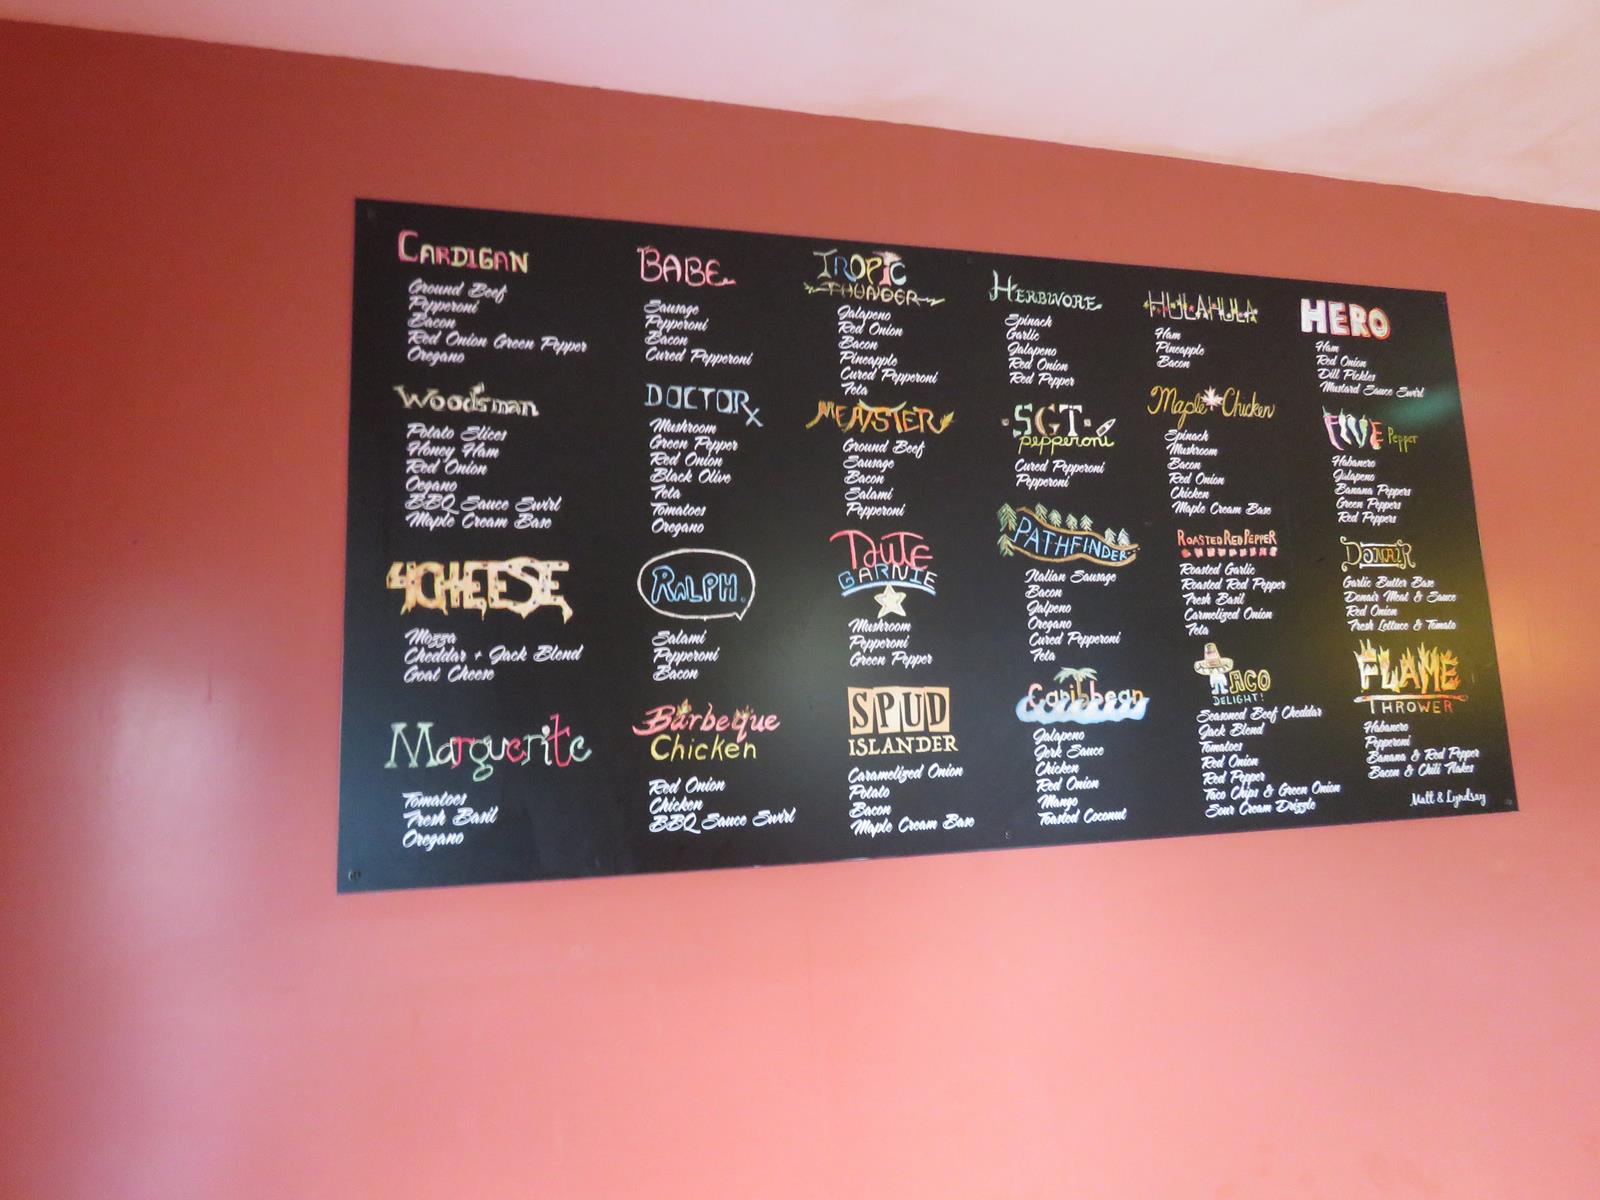 CARDIGAN
Ground Beef
Pepperoni
Bacon
Red Onion Green Pepper
Oregano
Woodsman
Potato Slices
Honey Ham
Red Onion
Oegano
BBQ Sauce Swirl
Maple Cream Base
4CHEESE
Mozza
Cheddar + Jack Blend
Goat Cheese
Marguerite
Tomatoes
Fresh Basil
Oregano
BABE
Sausage
Pepperoni
Bacon
Cured Pepperoni
DOCTORx
Mushroom
Green Pepper
Red Onion
Black Olive
Feta
Tomatoes
Oregano
RALPH.
Salami
Pepperoni
Bacon
Barbeque
Chicken
Red Onion
Chicken
BBQ Sauce Swirl
TROPIC
THUNDER
Jalapeno
Red Onion
Bacon
Pineapple
Cured Pepperoni
Feta
MEATSTER
Ground Beef
Sausage
Bacon
Salami
Pepperoni
TOUTE
GARNIE
Mushroom
Pepperoni
Green Pepper
SPUD
ISLANDER
Caramelized Onion
Potato
Bacon
Maple Cream Base
HERBIVORE
Spinach
Garlic
Jalapeno
Red Onion
Red Pepper
SGT.
pepperoni
Cured Pepperoni
Pepperoni
PATHFINDER
Italian Sausage
Bacon
Jalpeno
Oregano
Cured Pepperoni
Feta
Caribbean
Jalapeno
Jerk Sauce
Chicken
Red Onion
Mango
Toasted Coconut
HULAHULA
Ham
Pineapple
Bacon
Maple Chicken
Spinach
Mushroom
Bacon
Red Onion
Chicken
Maple Cream Base
ROASTED RED PEPPER
Roasted Garlic
Roasted Red Pepper
Fresh Basil
Carmelized Onion
Feta
TACO
DELIGHT!
Seasoned Beef Cheddar
Jack Blend
Tomatoes
Red Onion
Red Pepper
Taco Chips & Green Onion
Sour Cream Drizzle
HERO
Ham
Red Onion
Dill Pickles
Mustard Sauce Swirl
FIVE Pepper
Habanero
Jalapeno
Banana Peppers
Green Peppers
Red Peppers
DONAIR
Garlic Butter Base
Donair Meat & Sauce
Red Onion
Fresh Lettuce & Tomato
FLAME
THROWER
Habanero
Pepperoni
Banana & Red Pepper
Bacon & Chili Flakes
Matt & Lyndsay